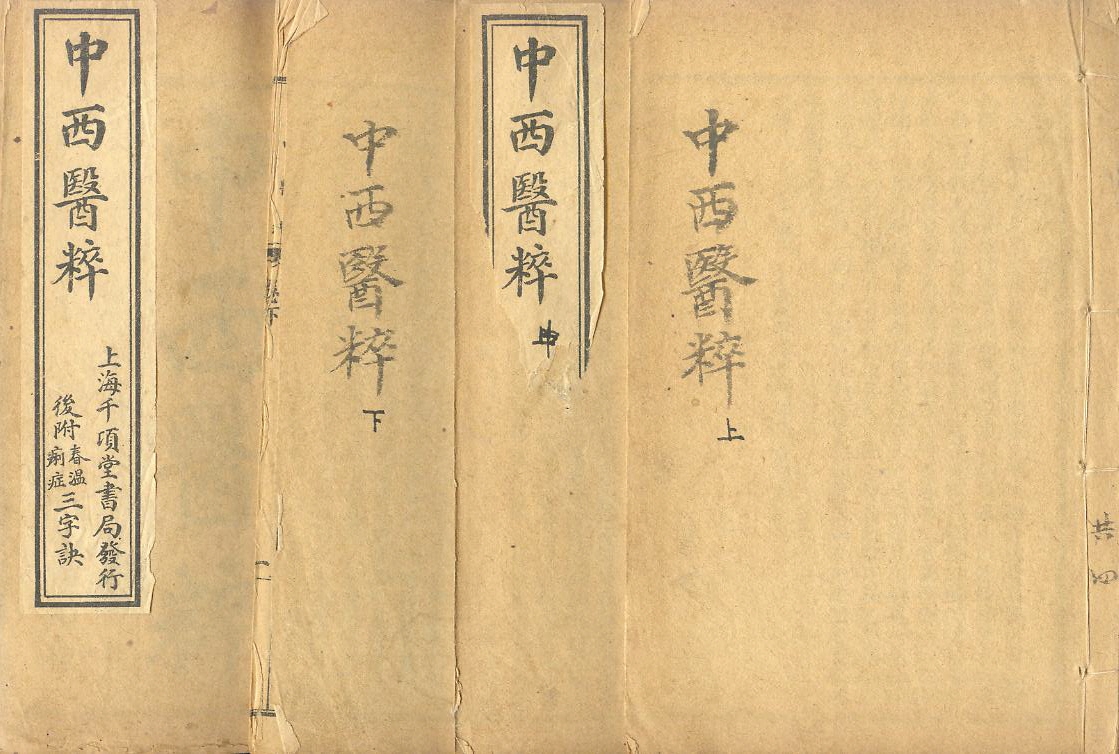 共四
中西醫粹
上
中西醫粹
中
中西醫粹
下
中西醫粹
上海千頃堂書局發行
後附春温痢症三字訣